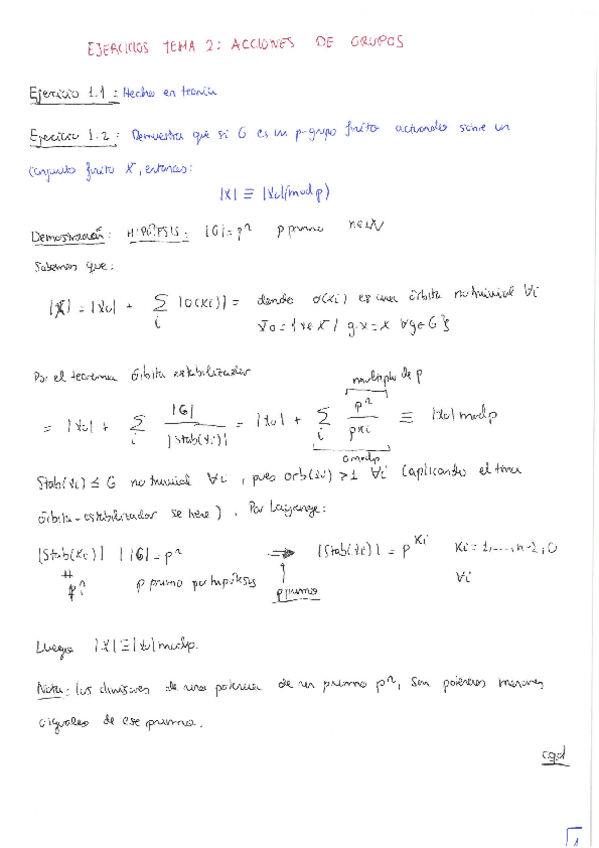 EJERCICIOS TEMA 2: ACCIONES DE GRUPOS
Ejercicio 1.1: Hecho en teoría
Ejercicio 1.2: Demuestra que si G es un p-grupo finito actuando sobre un
conjunto finito X, entonces:
|X| ≡ |X₀| (mod p)
Demostración: HIPÓTESIS: |G| = pⁿ p primo n∈ℕ
Sabemos que:
|X| = |X₀| + Σᵢ |O(xᵢ)| = donde O(xᵢ) es una órbita no trivial ∀i
X₀ = {x∈X / g·x = x ∀g∈G}
Por el teorema órbita estabilizador
múltiplo de p
= |X₀| + Σᵢ |G| / |Stab(xᵢ)| = |X₀| + Σᵢ pⁿ / p^{ki} ≡ |X₀| mod p
0 mod p
Stab(xᵢ) ≤ G no trivial ∀i, pues orb(xᵢ) > 1 ∀i (aplicando el
órbita-estabilizador se tiene). Por Lagrange:
|Stab(xᵢ)| | |G| = pⁿ ⟹ |Stab(xᵢ)| = p^{Ki} ∀i
pⁿ p primo por hipótesis p primo
Luego |X| ≡ |X₀| mod p.
Nota: los divisores de una potencia de un primo pⁿ, son potencias menores
o iguales de ese primo.
cqd
1